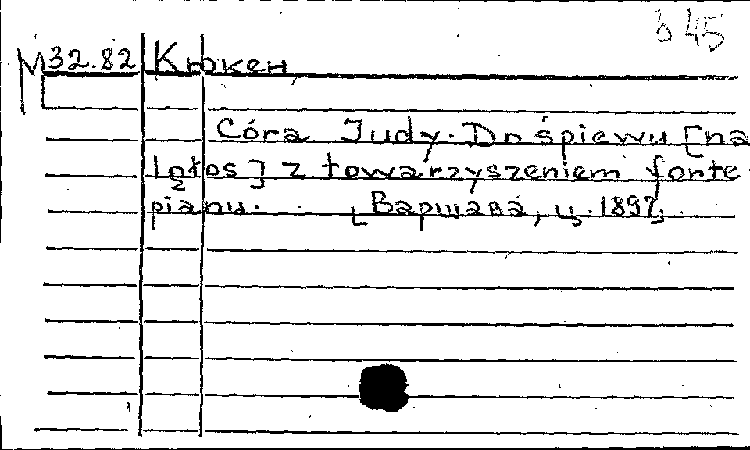 545
М 32.82 Кюкен
Córa Judy. Do śpiewu [na
1 głos] z towarzyszeniem forte-
pianu. [Варшава, ц. 1897]